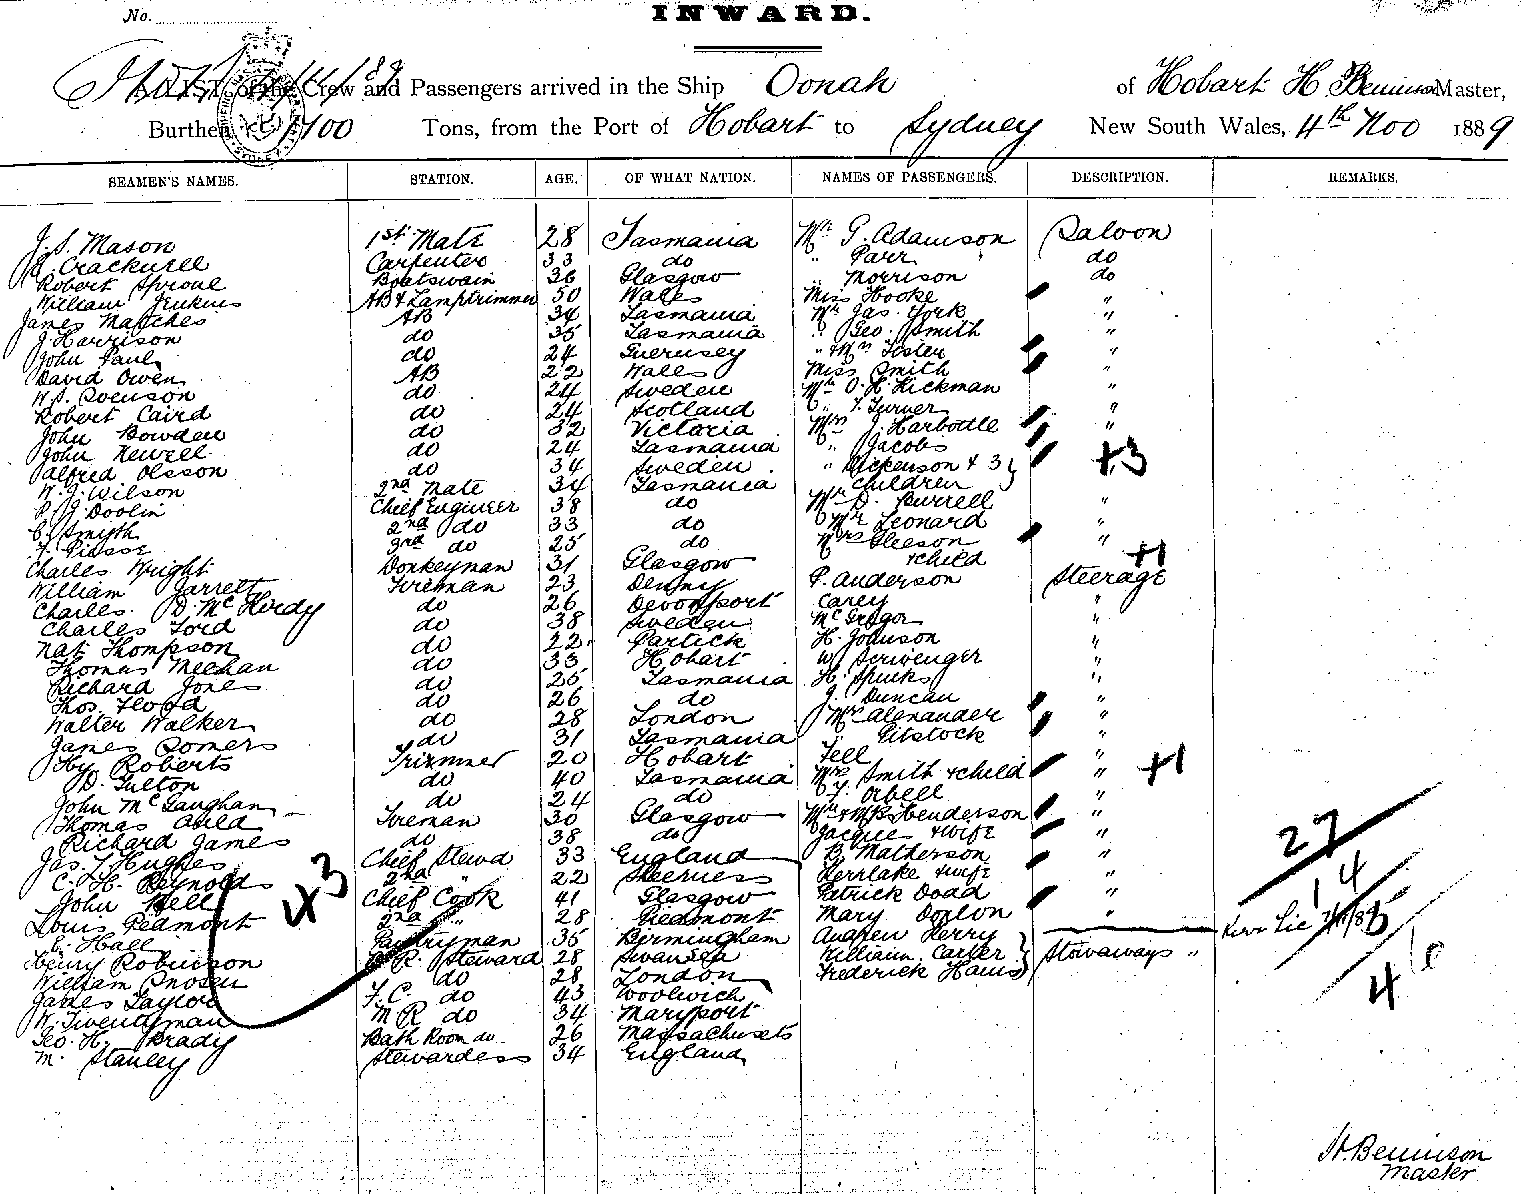 No.
INWARD.
LIST of the Crew and Passengers arrived in the Ship Oonah of Hobart H Bennison Master,
Burthen 1700 Tons, from the Port of Hobart to Sydney New South Wales, 4th Nov 1889
SEAMEN'S NAMES. STATION. AGE. OF WHAT NATION. NAMES OF PASSENGERS. DESCRIPTION. REMARKS.
J. S. Mason 1st Mate 28 Tasmania Mr G. Adamson Saloon
Cracknell Carpenter 33 do " Parr do
Robert Sproul Boatswain 36 Glasgow " Morrison do
William Jenkins AB & Lamptrimmer 50 Wales Miss Hooke "
James Matches AB 34 Tasmania Mr Jas. York "
J Harrison do 35 Tasmania " Geo. Smith "
John Paul do 24 Guernsey " & Mrs Foster "
David Owen AB 22 Wales Miss Smith "
W. S. Svenson do 24 Sweden Mr O. H. Hickman "
Robert Caird do 24 Scotland " T. Turner "
John Bowden do 32 Victoria Mrs J. Harbottle "
John Newell do 24 Tasmania " Jacobs
Alfred Olsson do 34 Sweden " Dickenson & 3 } +3
W. J. Wilson 2nd Mate 34 Tasmania children
P. J. Doolin Chief Engineer 38 do Mr D. Burrell "
C. Smyth 2nd do 33 do Mr Leonard "
F. Piesse 3rd do 25 do Mrs Gleeson "
Charles Wright Donkeyman 31 Glasgow & child +1
William Jarrett Fireman 23 Denny P. Anderson Steerage
Charles D. McHardy do 26 Devonport Carey "
Charles Ford do 38 Sweden McGregor "
Nat Thompson do 22 Partick H. Johnson "
Thomas Meehan do 33 Hobart W Scrivenger "
Richard Jones do 25 Tasmania H. Spinks "
Thos. Flood do 26 do J. Duncan "
Walter Walker do 28 London Mrs Alexander "
James Somers do 31 Tasmania " Gilstock "
Hy Roberts Trimmer 20 Hobart Fell "
D. Fulton do 40 Tasmania Mrs Smith & child " +1
John McGaughan do 24 do F. Orbell "
Thomas Auld Fireman 30 Glasgow Mr & Mrs Henderson "
Richard James do 38 do Jacques & wife "
Jas. L. Hughes Chief Stewd 33 England B. Matherson "
C. H. Reynolds 2nd " 22 Sheerness Kerrlake & wife "
John Bell Chief Cook 41 Glasgow Patrick Dodd "
Louis Piedmont 2nd " 28 Piedmont Mary Donlon "
C. Hall Pantryman 35 Birmingham Andrew Kerry
Henry Robinson R. Steward 28 Swansea William Carter } Stowaways "
William Snosen do 28 London Frederick Hams
James Taylor F. C. do 43 Woolwich
W. Twentyman M R do 34 Maryport
Geo. H. Brady Bath Room do 26 Massachusets
M. Stanley Stewardess 34 England
43
27
14
5
4
H. Bennison
Master